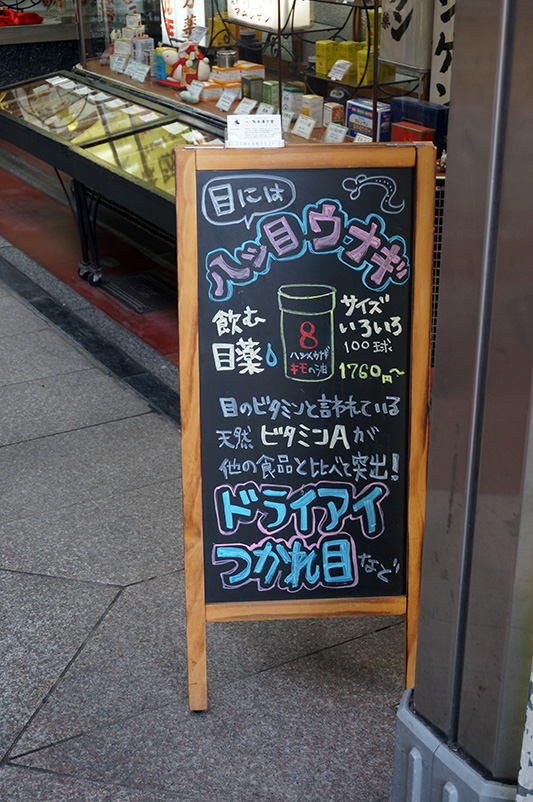 目には
八ツ目ウナギ
飲む
目薬
8
ハツメウナギ
キモの油
サイズ
いろいろ
100球
1760円〜
目のビタミンと言われている
天然 ビタミンAが
他の食品と比べて突出!
ドライアイ
つかれ目など